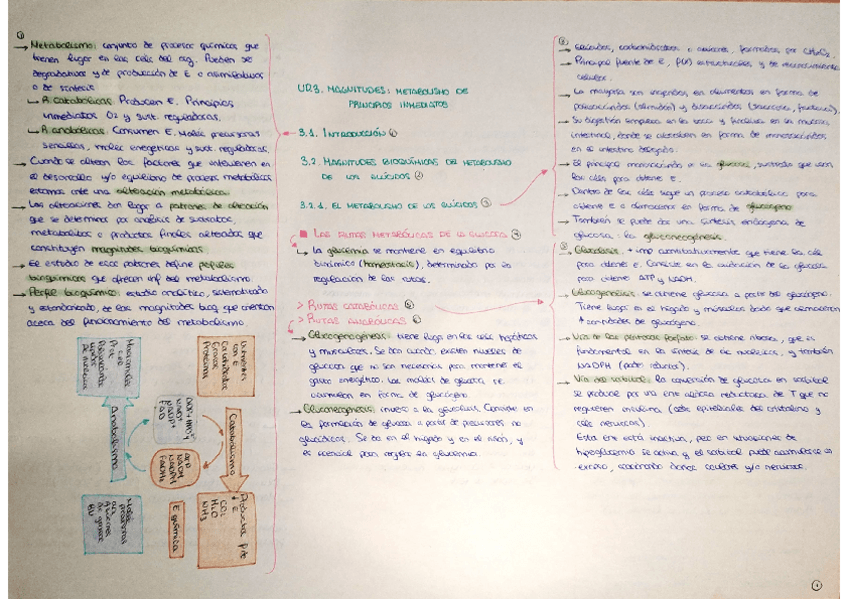 ①
→ Metabolismo: conjunto de procesos químicos que
tienen lugar en las céls del org. Pueden ser
degradativos y de producción de E o asimilativos
o de síntesis
↳ R. catabólicas: Producen E. Principios
inmediatos O2 y sust. reguladoras.
↳ R. anabólicas: Consumen E. Moléc precursoras
sencillas, moléc energéticas y sust reguladoras.
→ Cuando se alteran los factores que intervienen en
el desarrollo y/o equilibrio de procesos metabólicos
estamos ante una alteración metabólica.
→ Las alteraciones dan lugar a patrones de alteración
que se determina por análisis de sustratos,
metabolitos o productos finales alterados que
constituyen magnitudes bioquímicas
→ El estudio de esos patrones define perfiles
bioquímicos que ofrecen inf del metabolismo.
→ Perfil bioquímico: estudio analítico, sistematizado
y estandarizado, de las magnitudes bioq que orientan
acerca del funcionamiento del metabolismo.
Nutrientes
con E
Carbohidratos
Grasas
Proteínas
Catabolismo
Productos
↓ E
CO2
H2O
NH3
E química
ATP
NADH
NADPH
FADH2
NAD+
NADP+
FAD
Anabolismo
UD.3. MAGNITUDES: METABOLISMO DE
PRINCIPIOS INMEDIATOS
3.1. INTRODUCCIÓN ①
3.2. MAGNITUDES BIOQUÍMICAS DEL METABOLISMO
DE LOS GLÚCIDOS ②
3.2.1. EL METABOLISMO DE LOS GLÚCIDOS ③
LAS RUTAS METABÓLICAS DE LA GLUCOSA ④
↳ La glucemia se mantiene en equilibrio
dinámico (homeostasis), determinada por la
regulación de las rutas.
> RUTAS CATABÓLICAS ⑤
> RUTAS ANABÓLICAS ⑥
→ Glucogenogénesis: tiene lugar en las céls hepáticas
y musculares. Se da cuando existen niveles de
glucosa que no son necesarios para mantener el
gasto energético. Las moléc de glucosa se
acumulan en forma de glucógeno
→ Gluconeogénesis: inverso a la glucólisis. Consiste en
la formación de glucosa a partir de precursores no
glucídicos. Se da en el hígado y en el riñón, y
es esencial para regular la glucemia.
→ Glúcidos, carbohidratos o azúcares, formados por
→ Principal fuente de E, f(x) estructurales y de
celular.
→ La mayoría son ingeridos en alimentos en forma de
polisacáridos (almidón) y disacáridos (sacarosa,
→ Su digestión empieza en la boca y finaliza en la mucosa
intestinal, donde se absorben en forma de monosacáridos
en el intestino delgado.
→ El principal monosacárido es la glucosa, sustrato que usan
las céls para obtener E.
→ Dentro de las céls sigue un proceso catabólico para
obtener E o almacenar en forma de glucógeno
→ También se puede dar una síntesis endógena de
glucosa: la gluconeogénesis.
→ Glucólisis: + imp cuantitativamente que tiene la cél
para obtener E. Consiste en la oxidación de la glucosa
para obtener ATP y NADH.
→ Glucogenólisis: se obtiene glucosa a partir del glucógeno.
Tiene lugar en el hígado y músculos dado que almacenan
+ cantidades de glucógeno.
→ Vía de las pentosas fosfato: se obtiene ribosa, que es
fundamental en la síntesis de ác nucleicos, y también
NADPH (poder reductor).
→ Vía del sorbitol: la conversión de glucosa en sorbitol
se produce por una enz aldosa reductasa de T que no
requieren insulina (céls epiteliales del cristalino y
céls nerviosas).
Esta enz está inactiva, pero en situaciones de
hiperglucemia se activa y el sorbitol puede acumularse en
exceso, ocasionando daños oculares y/o nerviosos.
①